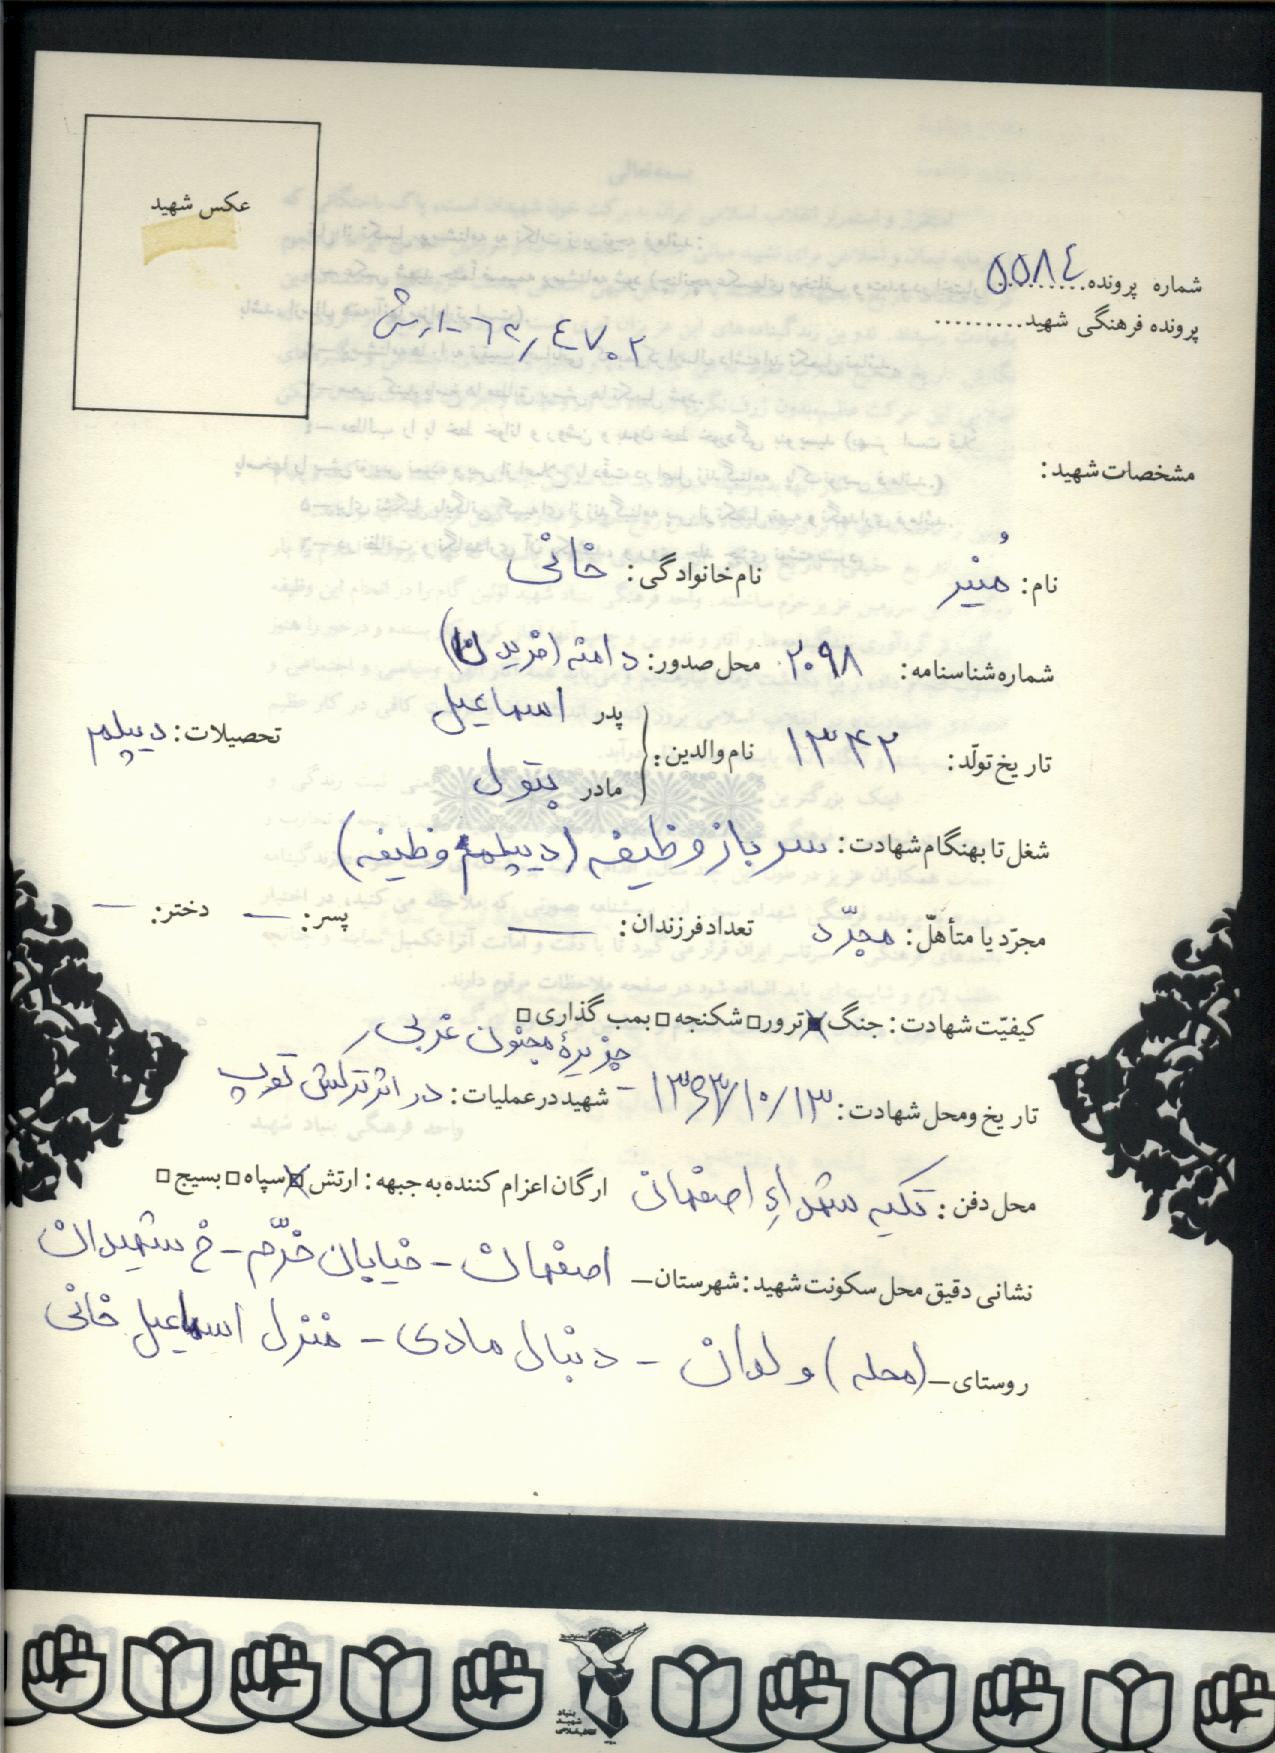 عکس شهید
شماره پرونده ۵۵۸٤
پرونده فرهنگی شهید.........
٦٢/٤٧٠٢-ارتش
مشخصات شهید:
نام: مُنیر نام خانوادگی: خانی
شماره شناسنامه: ۲۰۹۸ محل صدور: دامنه (فریدن)
تاریخ تولّد: ۱۳۴۲ نام والدین: پدر اسماعیل مادر بتول تحصیلات: دیپلم
شغل تا بهنگام شهادت: سرباز وظیفه (دیپلم وظیفه)
مجرّد یا متأهلّ: مجرّد تعداد فرزندان: — پسر: — دختر: —
کیفیّت شهادت: جنگ ☒ ترور □ شکنجه □ بمب گذاری □
جزیرهٔ مجنون غربی
تاریخ و محل شهادت: ۱۳۶۳/۱۰/۱۳ شهید در عملیات: در اثر ترکش توپ
محل دفن: تکیه شهداءِ اصفهان ارگان اعزام کننده به جبهه: ارتش ☒ سپاه □ بسیج □
نشانی دقیق محل سکونت شهید: شهرستان— اصفهان - خیابان خرّم - خ شهیدان
روستای—(محله) ولدان - دنبال مادی - منزل اسماعیل خانی
بنیاد
شهید
انقلاب اسلامی